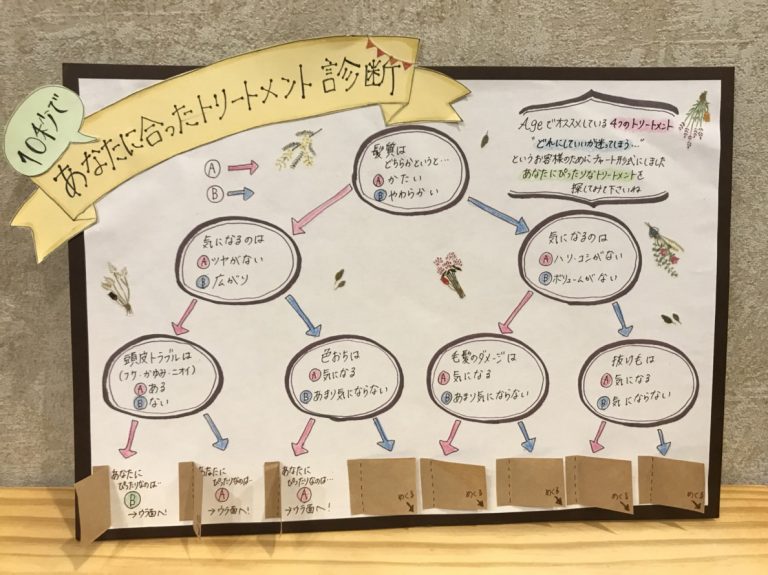 10秒で
あなたに合ったトリートメント診断
Ageでオススメしている4つのトリートメント
"どれにしていいか迷ってしまう…"
というお客様のためにチャート形式にしました
あなたにぴったりなトリートメントを
探してみて下さいね
Ⓐ →
Ⓑ →
髪質は
どちらかというと…
Ⓐかたい
Ⓑやわらかい
気になるのは
Ⓐツヤがない
Ⓑ広がり
気になるのは
Ⓐハリ・コシがない
Ⓑボリュームがない
頭皮トラブルは
(フケ・かゆみ・ニオイ)
Ⓐある
Ⓑない
色おちは
Ⓐ気になる
Ⓑあまり気にならない
毛髪のダメージは
Ⓐ気になる
Ⓑあまり気にならない
抜け毛は
Ⓐ気になる
Ⓑ気にならない
あなたに
ぴったりなのは…
Ⓑ
→ウラ面へ!
あなたに
ぴったりなのは…
Ⓐ
→ウラ面へ!
あなたに
ぴったりなのは…
Ⓐ
→ウラ面へ!
めくる
めくる
めくる
めくる
めくる